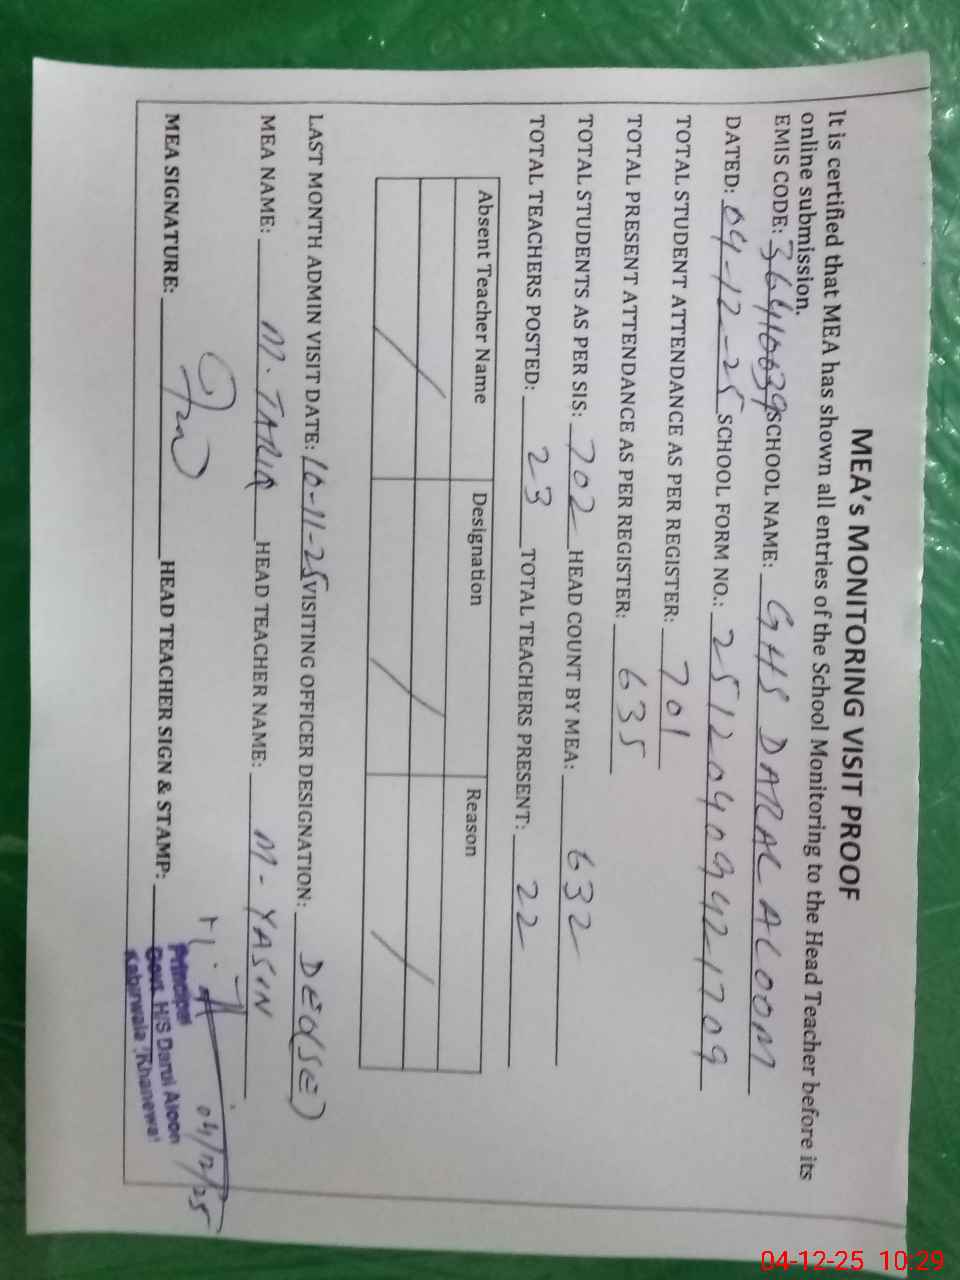 MEA's MONITORING VISIT PROOF
It is certified that MEA has shown all entries of the School Monitoring to the Head Teacher before its
online submission.
EMIS CODE: 36410039 SCHOOL NAME: GHS DARAL ALOOM
DATED: 04-12-25 SCHOOL FORM NO.: 25120409421709
TOTAL STUDENT ATTENDANCE AS PER REGISTER: 701
TOTAL PRESENT ATTENDANCE AS PER REGISTER: 635
TOTAL STUDENTS AS PER SIS: 702 HEAD COUNT BY MEA: 632
TOTAL TEACHERS POSTED: 23 TOTAL TEACHERS PRESENT: 22
Absent Teacher Name Designation Reason
/ / /
LAST MONTH ADMIN VISIT DATE: 10-11-25 VISITING OFFICER DESIGNATION: DEO(SE)
MEA NAME: M. TARIQ HEAD TEACHER NAME: M- YASIN
MEA SIGNATURE: HEAD TEACHER SIGN & STAMP:
04/12/25
Principal
Govt. H/S Darul Aloom
Kabirwala (Khanewal
04-12-25 10:29